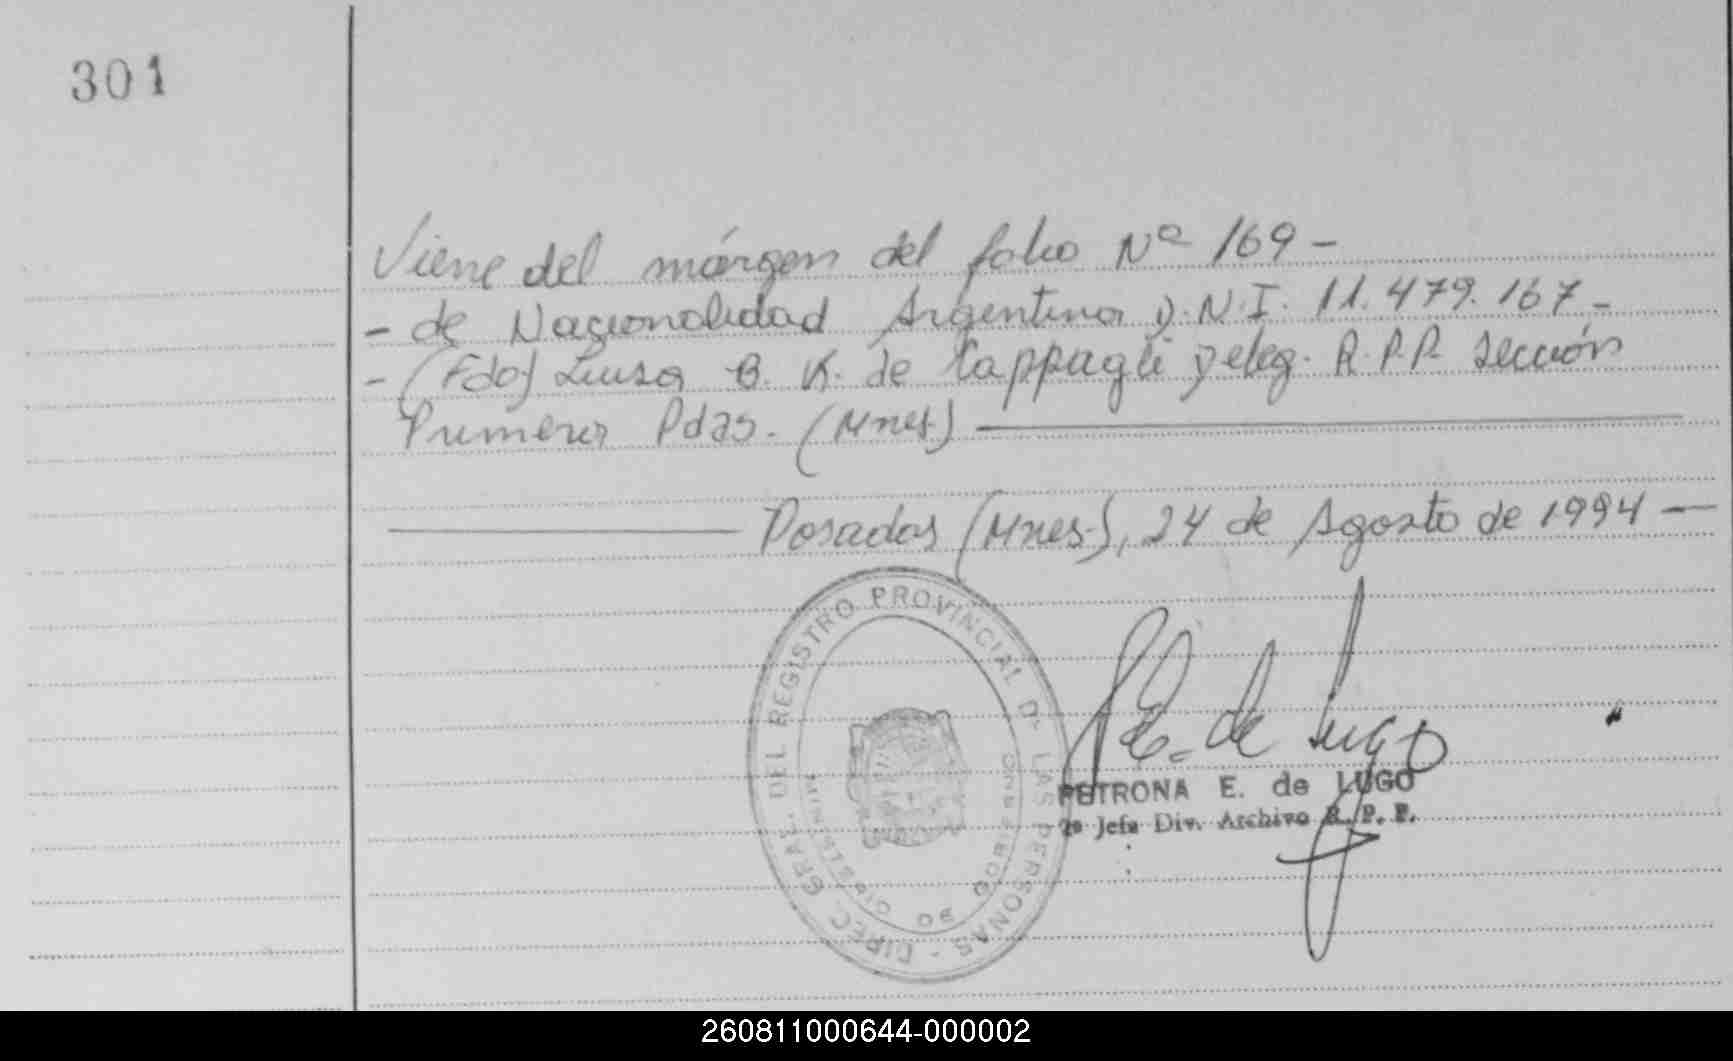 301
Viene del márgen del folio Nº 169 -
- de Nacionalidad Argentina D.N.I. 11.479.167 -
- (Fdo) Luisa B. K. de Cappagli Deleg. R.P.P. Sección
Primera Pdas. (Mnes)
Posadas (Mnes.), 24 de Agosto de 1994 -
DIREC. GRAL. DEL REGISTRO PROVINCIAL D. LAS PERSONAS -
MINISTERIO DE GOBIERNO
P E. de Lugo
PETRONA E. de LUGO
2º Jefa Div. Archivo R. P. P.
260811000644-000002